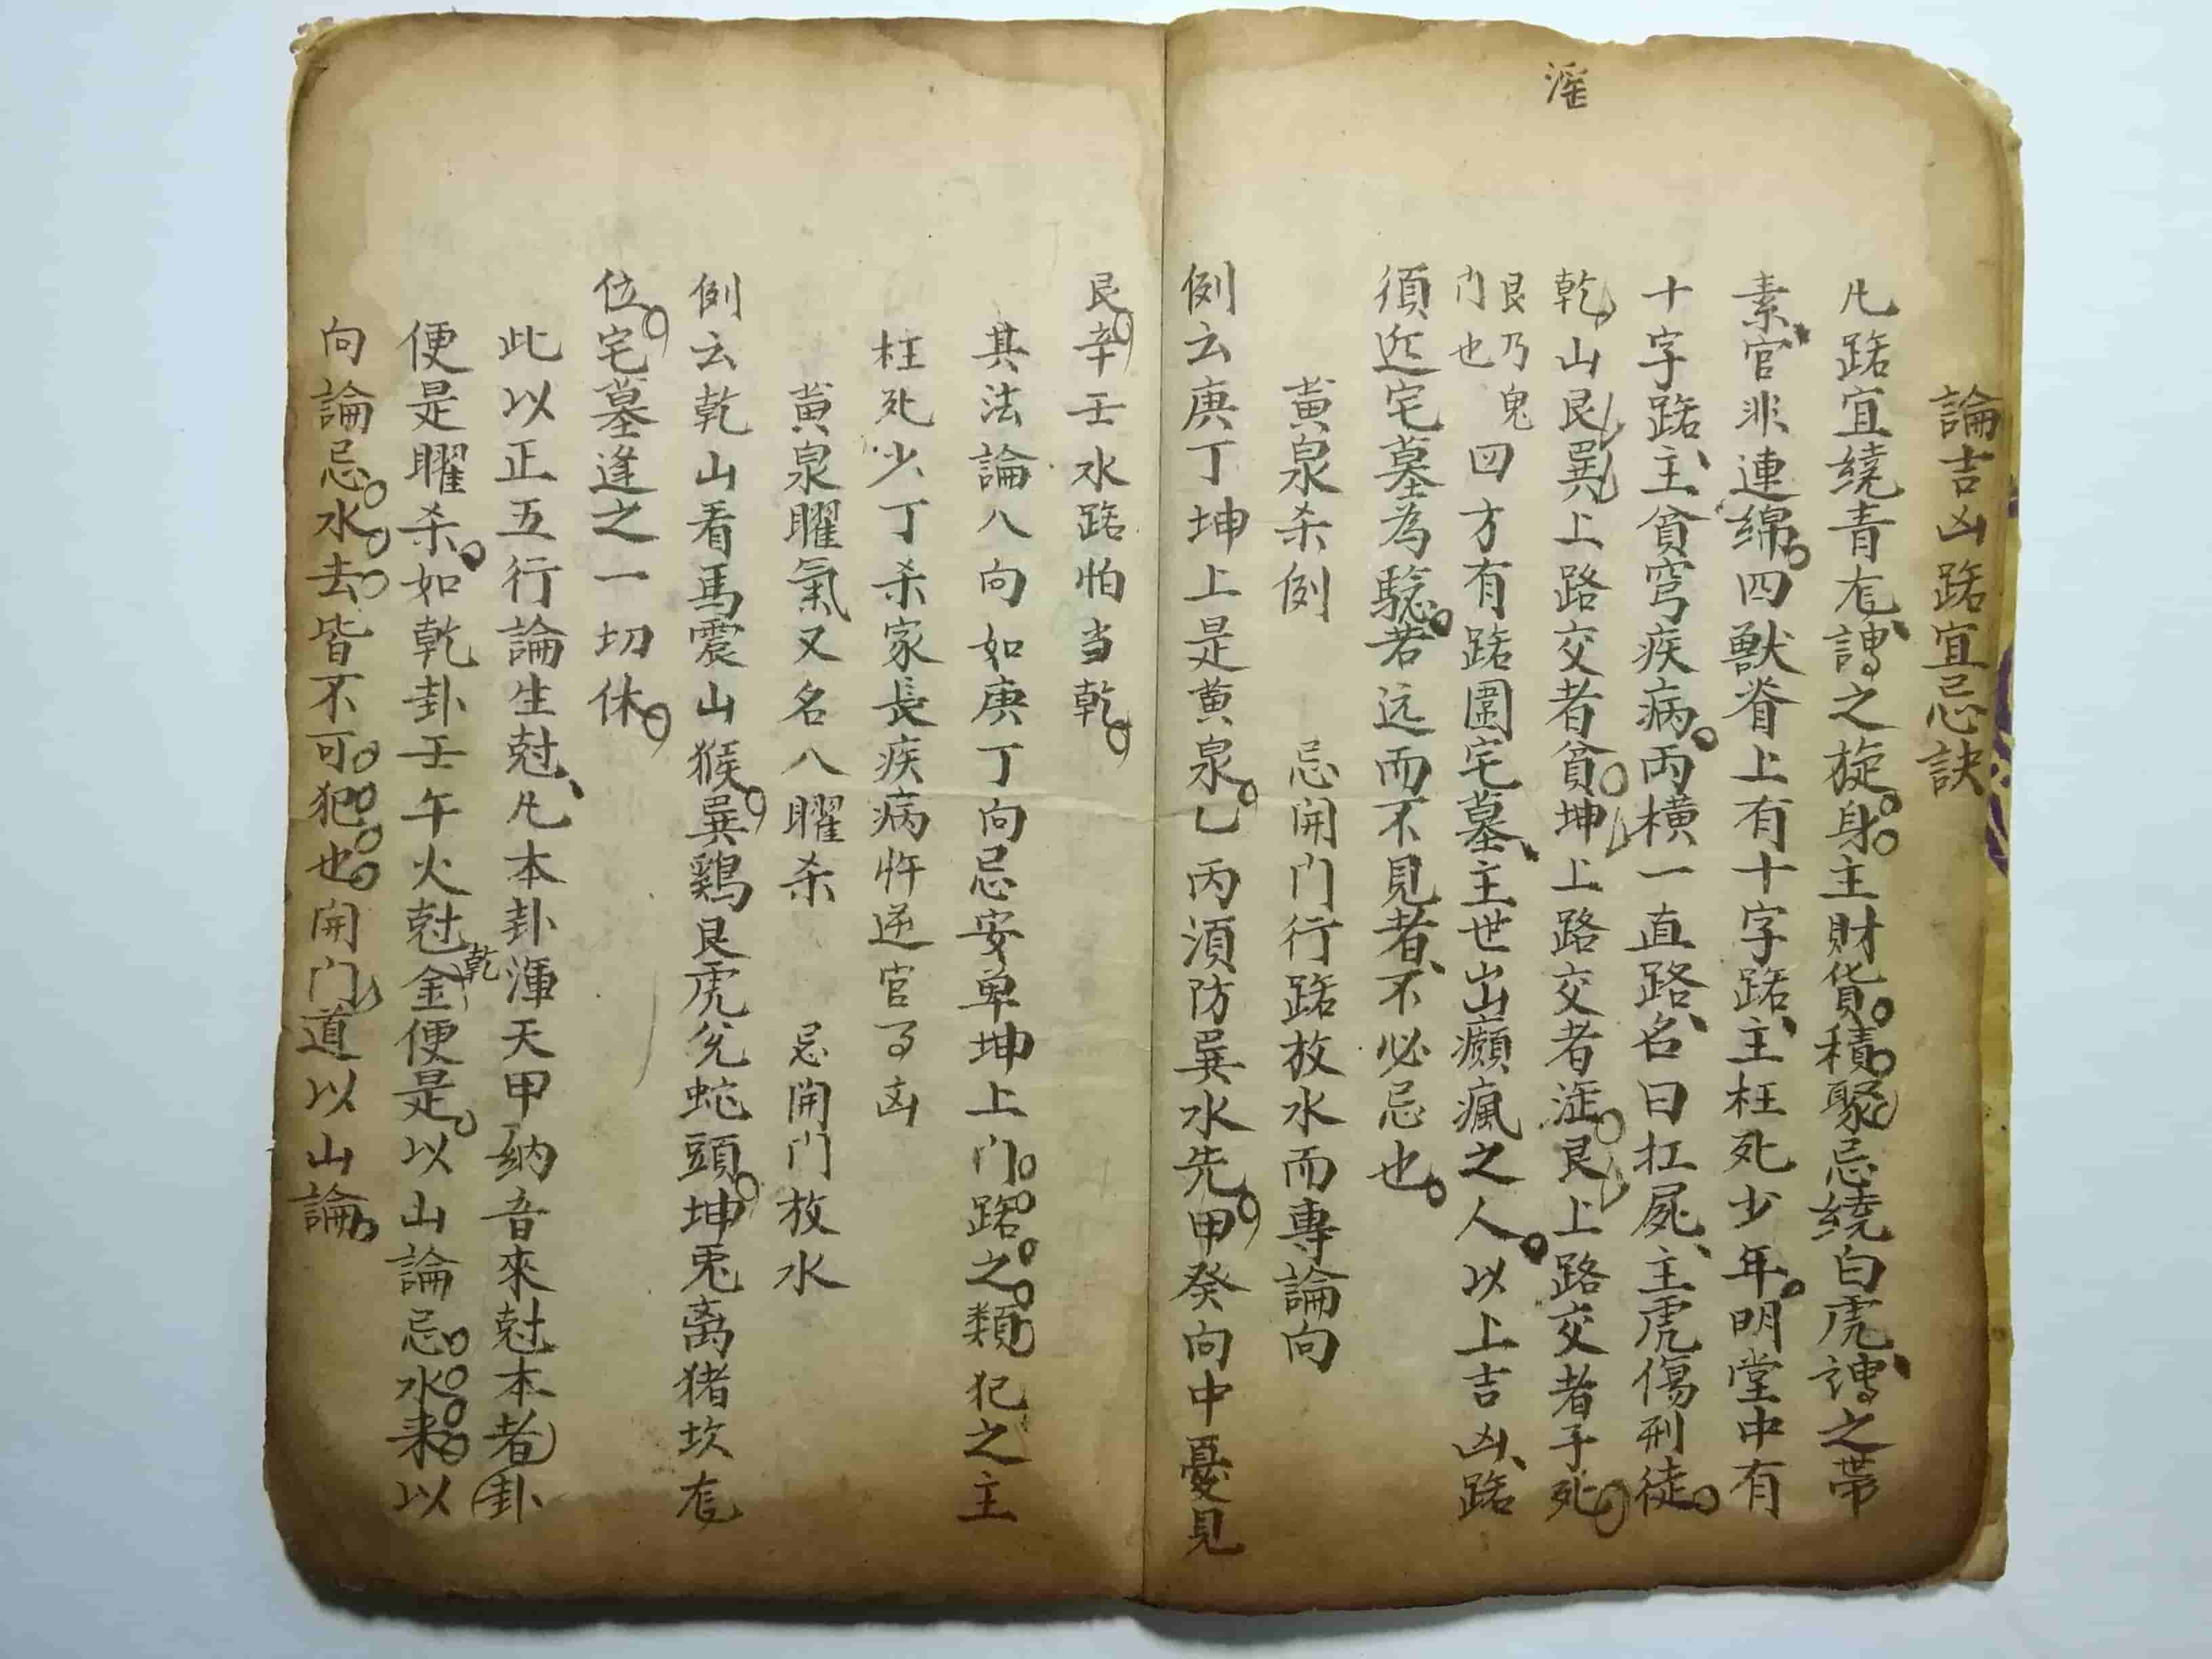 滛
論吉凶路宜忌訣
凢路宜繞青尨謂之旋身主財貨積聚忌繞白虎謂之帯
素官非連綿四獸脊上有十字路主枉死少年明堂中有
十字路主貧窮疾病两橫一直路名曰扛屍主虎傷刑徒
乾山艮巽上路交者貧坤上路交者滛艮上路交者子死
艮乃鬼门也四方有路圍宅墓主世出癲瘋之人以上吉凶路
須近宅墓為驗若远而不見者不必忌也
黄泉杀例 忌開门行路放水而專論向
例云庚丁坤上是黄泉乙丙須防巽水先甲癸向中憂見
艮辛壬水路怕当乾
其法論八向如庚丁向忌安单坤上门路之類犯之主
枉死少丁杀家長疾病忤逆官凶
黄泉曜氣又名八曜杀 忌開門放水
例云乾山看馬震山猴巽鷄艮虎兊蛇頭坤兎离猪坎尨
位宅墓逢之一切休
此以正五行論生尅凢本卦渾天甲納音來尅本者卦
便是曜杀如乾卦壬午火尅乾金便是以山論忌水来以
向論忌水去皆不可犯也開门道以山論